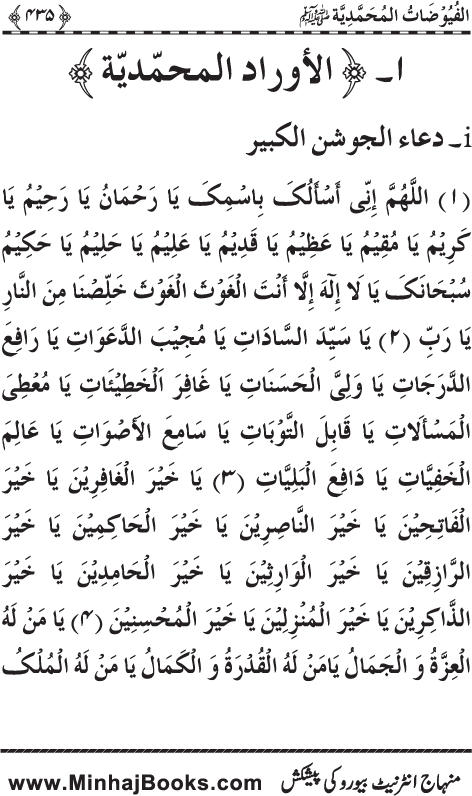 الفُيُوْضَاتُ المُحَمَّدِيَّة ﷺ ﴿۴۳۵﴾
۱۔ ﴿ الأوراد المحمّديّة ﴾
i۔ دعاء الجوشن الكبير
(۱) اللَّهُمَّ إِنِّي أَسْأَلُكَ بِاسْمِكَ يَا رَحْمَانُ يَا رَحِيْمُ يَا
كَرِيْمُ يَا مُقِيْمُ يَا عَظِيْمُ يَا قَدِيْمُ يَا عَلِيْمُ يَا حَلِيْمُ يَا حَكِيْمُ
سُبْحَانَكَ يَا لَا إِلَهَ إِلَّا أَنْتَ الْغَوْثَ الْغَوْثَ خَلِّصْنَا مِنَ النَّارِ
يَا رَبِّ (۲) يَا سَيِّدَ السَّادَاتِ يَا مُجِيْبَ الدَّعَوَاتِ يَا رَافِعَ
الدَّرَجَاتِ يَا وَلِيَّ الْحَسَنَاتِ يَا غَافِرَ الْخَطِيْئَاتِ يَا مُعْطِيَ
الْمَسْأَلَاتِ يَا قَابِلَ التَّوْبَاتِ يَا سَامِعَ الأَصْوَاتِ يَا عَالِمَ
الْخَفِيَّاتِ يَا دَافِعَ الْبَلِيَّاتِ (۳) يَا خَيْرَ الْغَافِرِيْنَ يَا خَيْرَ
الْفَاتِحِيْنَ يَا خَيْرَ النَّاصِرِيْنَ يَا خَيْرَ الْحَاكِمِيْنَ يَا خَيْرَ
الرَّازِقِيْنَ يَا خَيْرَ الْوَارِثِيْنَ يَا خَيْرَ الْحَامِدِيْنَ يَا خَيْرَ
الذَّاكِرِيْنَ يَا خَيْرَ الْمُنْزِلِيْنَ يَا خَيْرَ الْمُحْسِنِيْنَ (۴) يَا مَنْ لَهُ
الْعِزَّةُ وَ الْجَمَالُ يَامَنْ لَهُ الْقُدْرَةُ وَ الْكَمَالُ يَا مَنْ لَهُ الْمُلْكُ
منہاج انٹرنیٹ بیورو کی پیشکش www.MinhajBooks.com